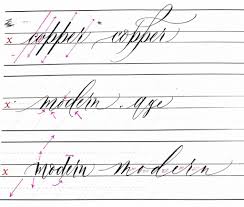 x copper copper
x modern age
x modern modern